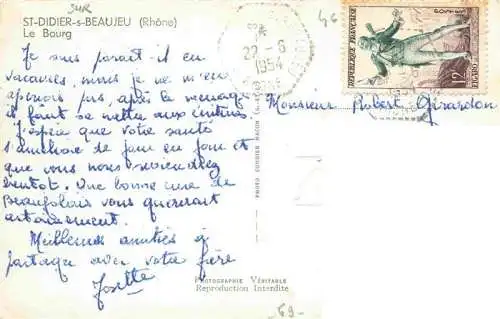 SUR
ST-DIDIER-s-BEAUJEU (Rhône)
Le Bourg
Je suis paraît-il en
vacances, mais je ne m'en
aperçois pas, après le ménage
il faut se mettre aux
J'espère que votre santé
s'améliore de jour en jour et
que vous nous reviendrez
bientôt. Une bonne cure de
Beaujolais vous guérirait
certainement.
Meilleures amitiés à
partager avec votre frère
Josette
22-6
1954
46
REPUBLIQUE FRANÇAISE
POSTES
12F
Monsieur Robert Girardon
PHOTO COMBIER MACON
PHOTOGRAPHIE VÉRITABLE
Reproduction Interdite
-69-